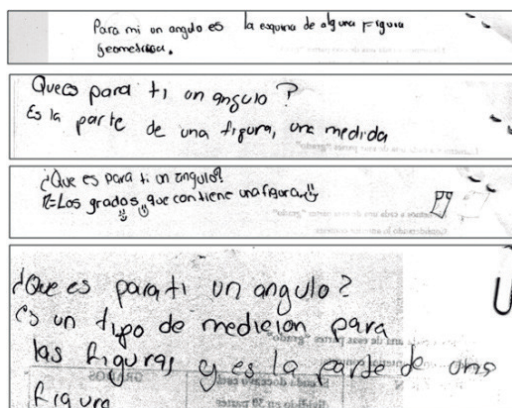 Para mi un angulo es la esquina de alguna figura
Geometrica.
Que es para ti un angulo?
Es la parte de una figura, una medida
¿Que es para ti un angulo?
R=Los grados que contiene una figura
¿Que es para ti un angulo?
es un tipo de medicion para
las figuras y es la parte de una
figura